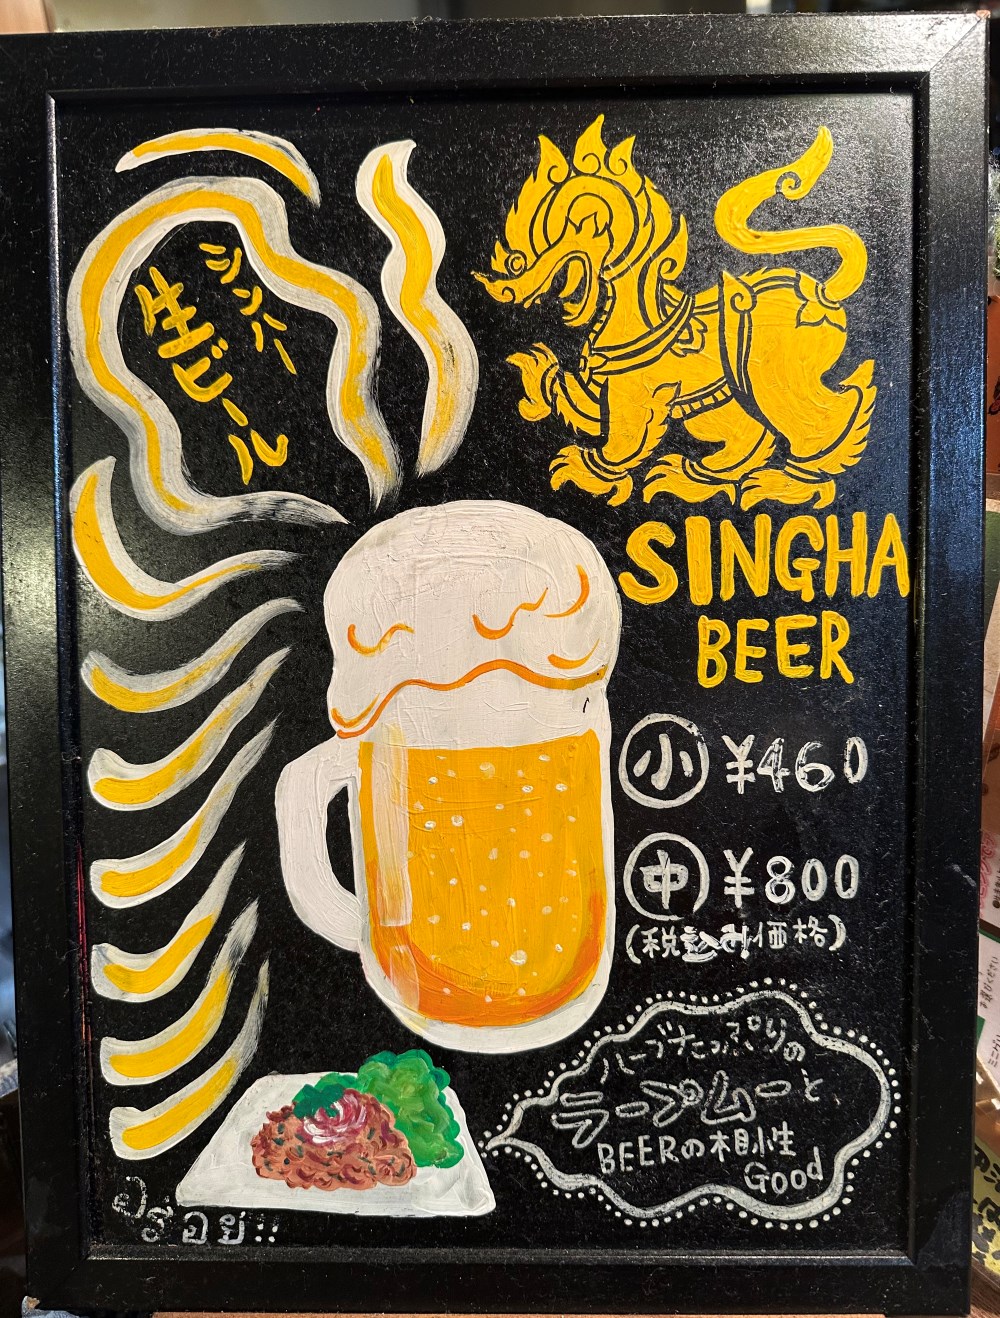 シンハー
生ビール
SINGHA
BEER
小 ¥460
中 ¥800
(税込み価格)
ハーブたっぷりの
ラープムーと
BEERの相性
Good
อร่อย!!